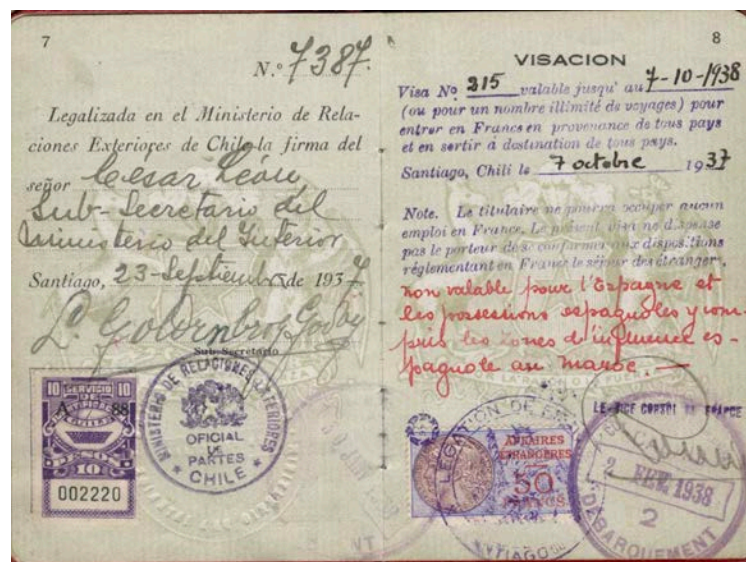 7
N.º 7387.
Legalizada en el Ministerio de Rela-
ciones Exteriores de Chile la firma del
señor César León,
Sub-Secretario del
Ministerio del Interior
Santiago, 23-Septiembre de 1937
Sub Secretario
MINISTERIO DE RELACIONES EXTERIORES
OFICIAL
DE
PARTES
CHILE
10 SERVICIO 10
PESOS
10
002220
8
VISACION
Visa No 215 valable jusqu' au 7-10-1938
(ou pour un nombre illimité de voyages) pour
entrer en France en provenance de tous pays
et en sortir à destination de tous pays.
Santiago, Chili le 7 octobre 1937
Note. Le titulaire ne pourra occuper aucun
emploi en France. Le présent visa ne dispense
pas le porteur de se conformer aux dispositions
réglementant en France le séjour des étrangers.
non valable pour l'Espagne et
les possessions espagnoles y com-
pris les zones d'influence es-
pagnole au Maroc. —
LE VICE CONSUL DE FRANCE
LEGATION DE
AFFAIRES
ETRANGERES
50
FRANCS
2 FEV 1938
2
DÉBARQUEMENT